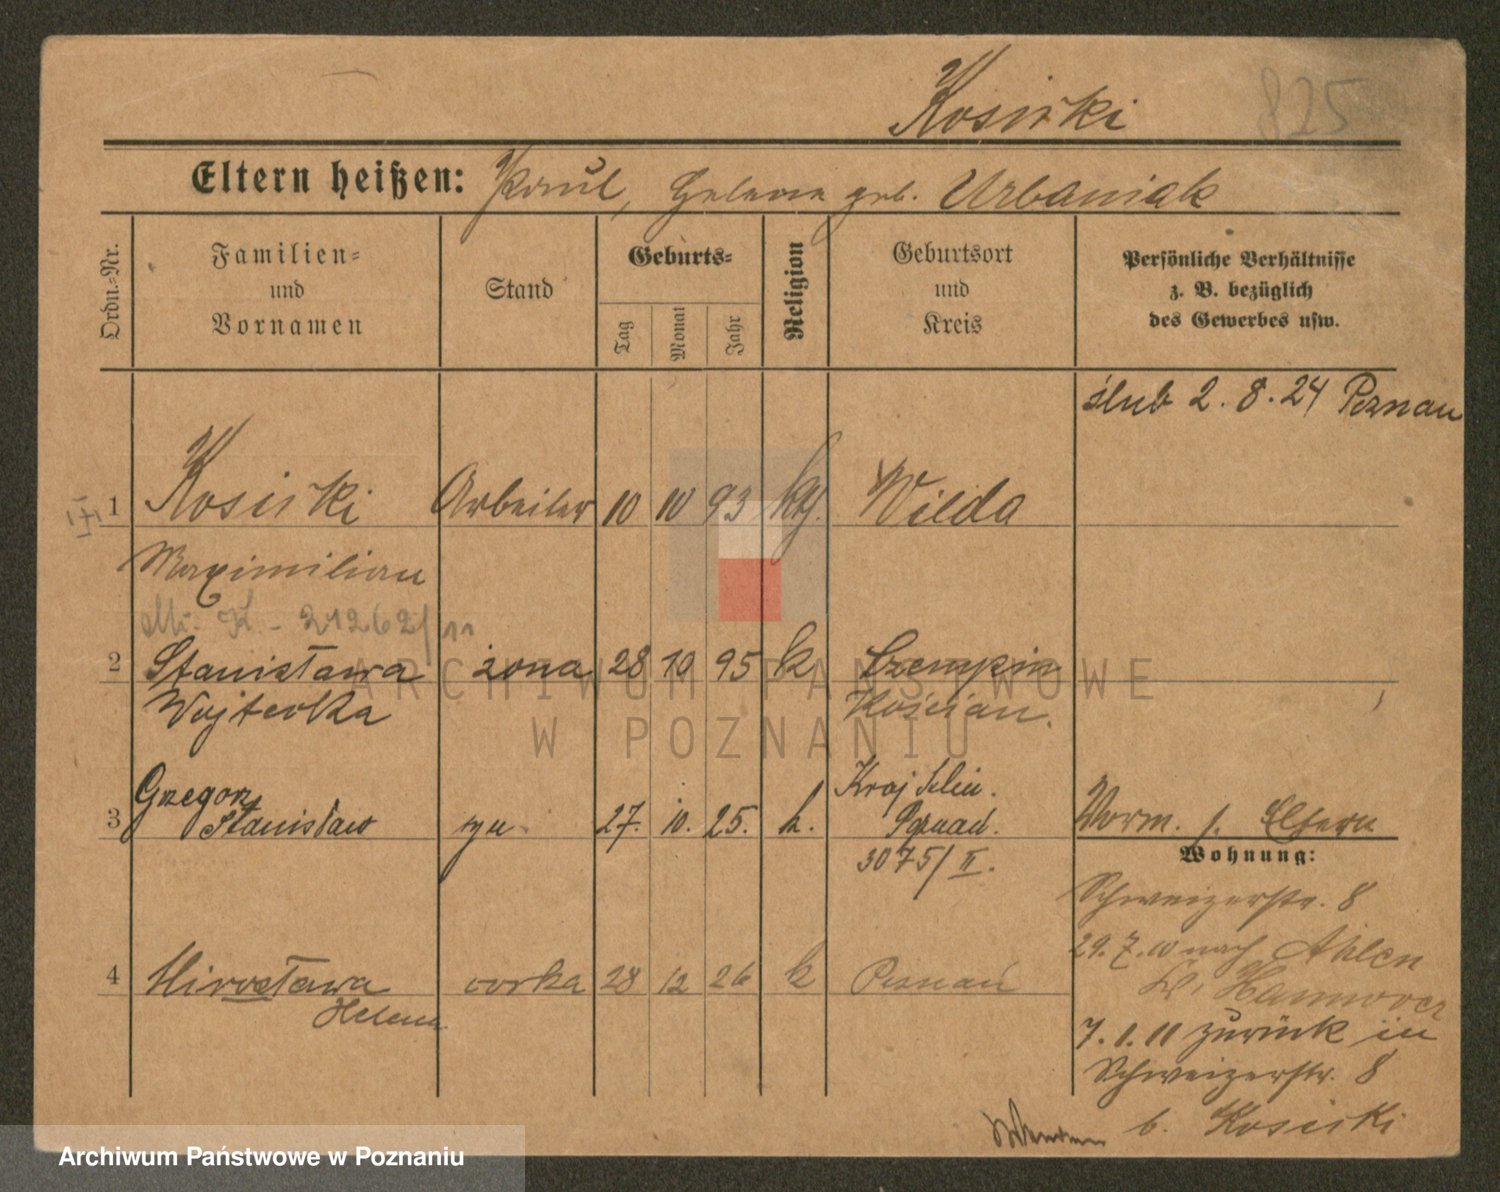 Kosicki 825
Eltern heißen: Paul, Helene geb. Urbaniak
Ordn.-Nr.
Familien-
und
Vornamen
Stand
Geburts-
Tag
Monat
Jahr
Religion
Geburtsort
und
Kreis
Persönliche Verhältnisse
z. B. bezüglich
des Gewerbes usw.
ślub 2. 8. 24 Poznań
1 Kosicki Arbeiter 10 10 93 kth. Wilda
Maximilian
K. - 21262/11
2 Stanisława żona 28 10 95 k Czempiń
Wojtecka Kościan.
Grzegorz
3 Stanisław syn 27. 10. 25. k.
Poznań.
3075/II.
Vorm. s. Eltern
Wohnung:
Schweizerstr. 8
29. 7. 10 nach Ahlen
Hannover
7. 1. 11 zurück in
Schweizerstr. 8
b. Kosicki
4 Mirosława córka 28 12 26 k Poznań
Helena
ARCHIWUM PAŃSTWOWE
W POZNANIU
Archiwum Państwowe w Poznaniu